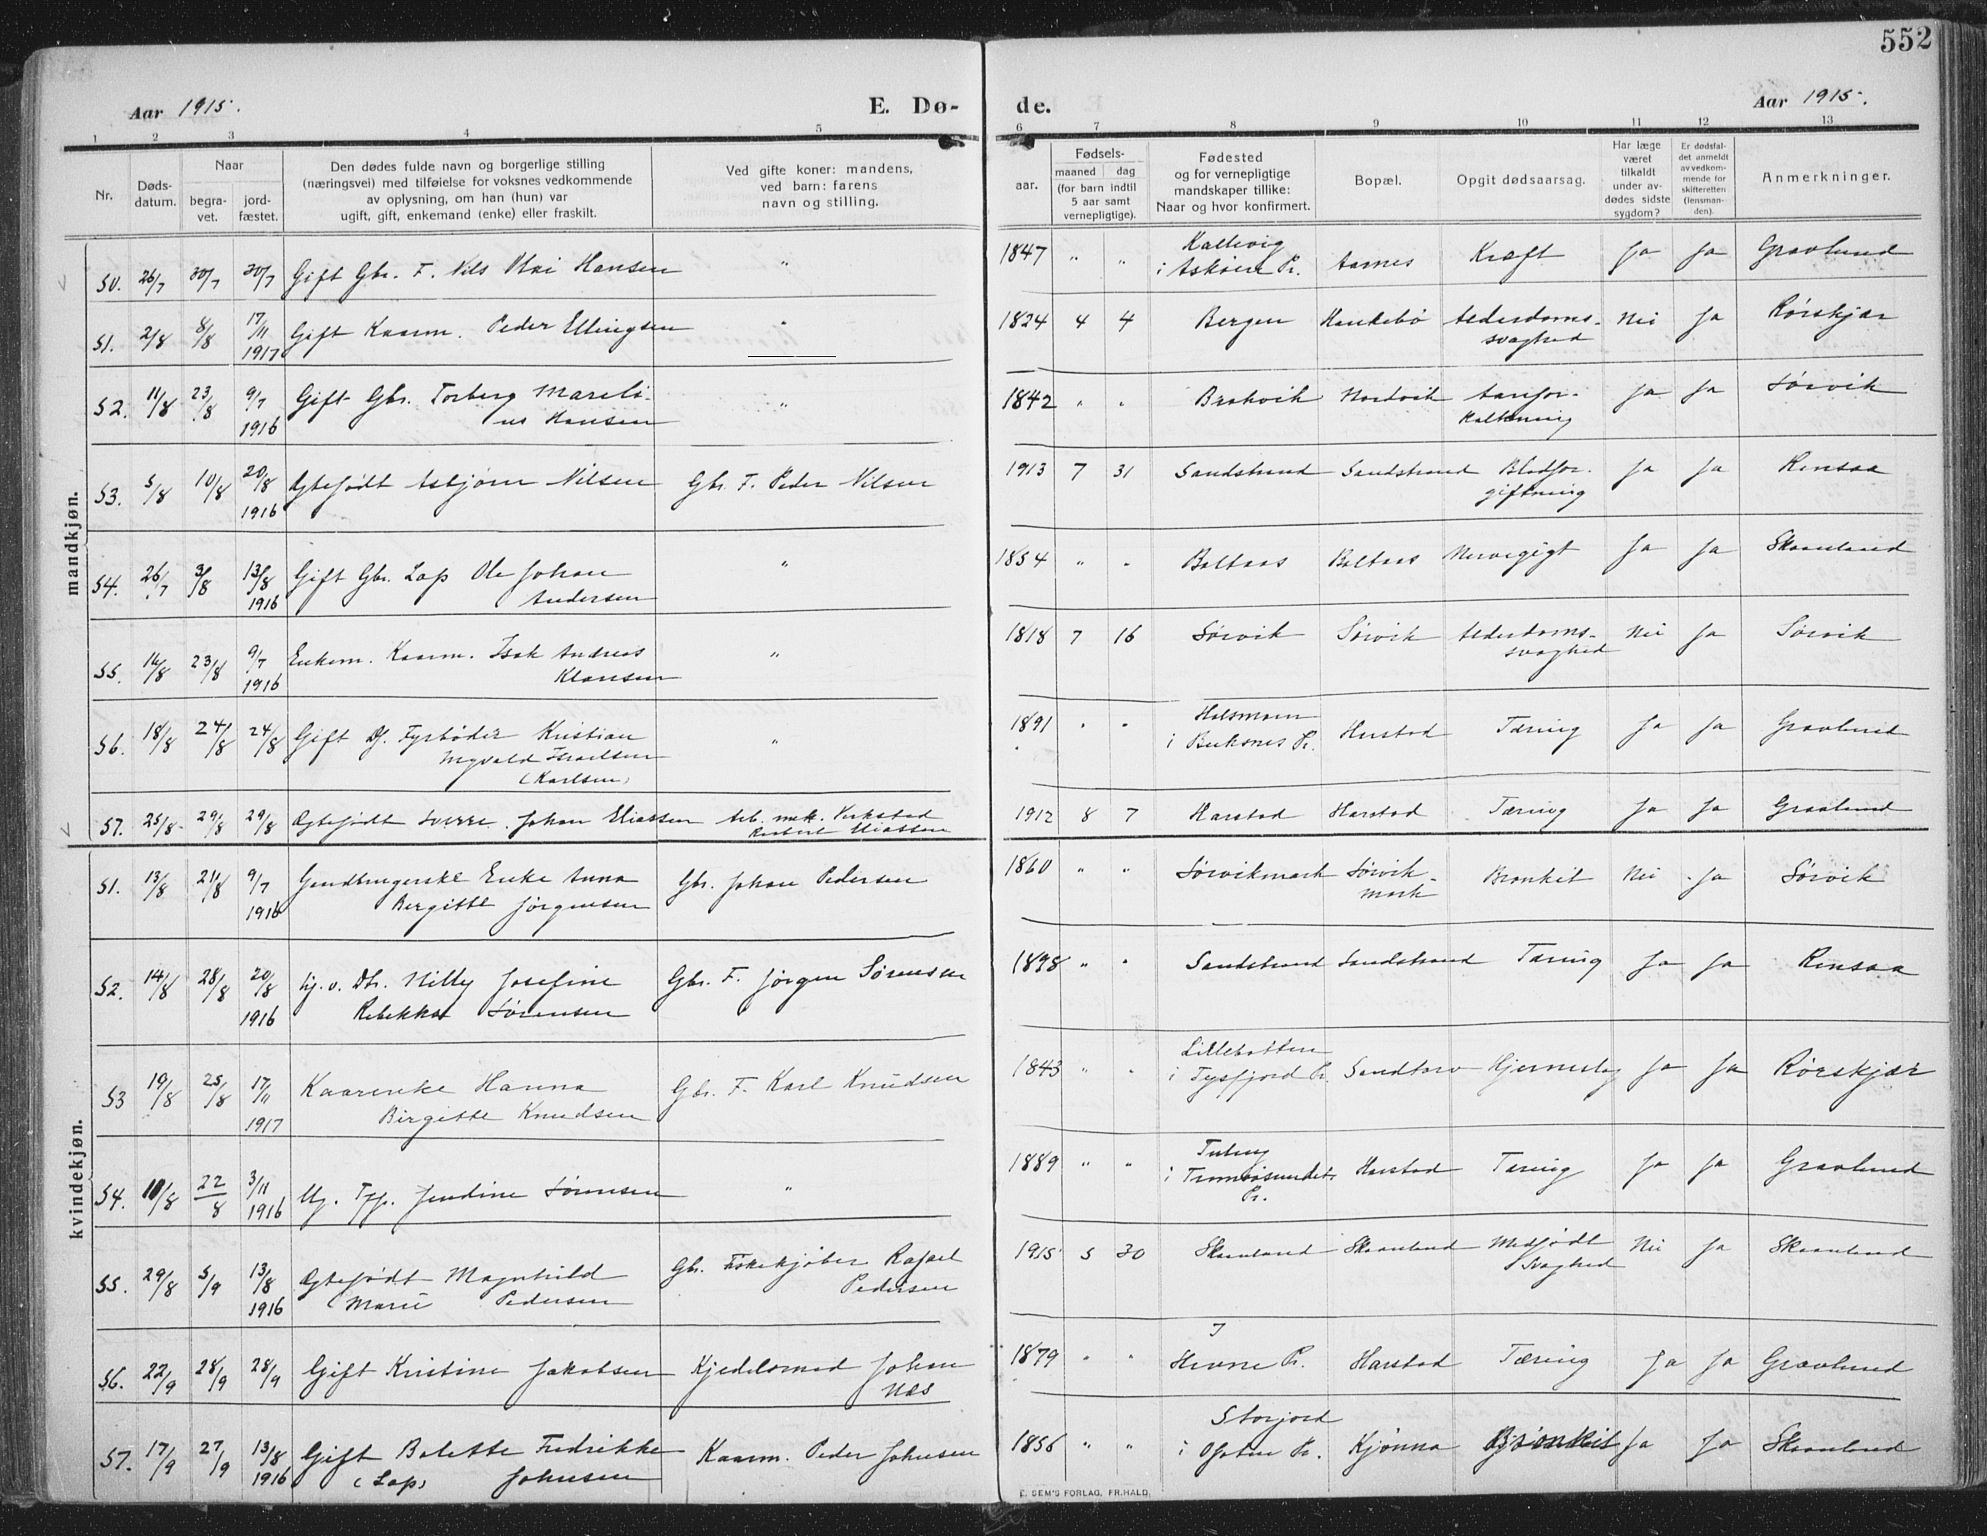 552
Aar 1915.
E. Dø-
de.
Aar 1915.
1 2 3 4 5 6 7 8 9 10 11 12 13
Nr.
Døds-
datum.
Naar
begra-
vet.
jord-
fæstet.
Den dødes fulde navn og borgerlige stilling
(næringsvei) med tilføielse for voksnes vedkommende
av oplysning, om han (hun) var
ugift, gift, enkemand (enke) eller fraskilt.
Ved gifte koner: mandens,
ved barn: farens
navn og stilling.
Fødsels-
aar.
maaned
dag
(for barn indtil
5 aar samt
vernepligtige).
Fødested
og for vernepligtige
mandskaper tillike:
Naar og hvor konfirmert.
Bopæl.
Opgit dødsaarsag.
Har læge
været
tilkaldt
under av-
dødes sidste
sygdom?
Er dødsfal-
det anmeldt
av vedkom-
mende for
skifteretten
(lensman-
den).
Anmerkninger.
mandkjøn.
50. 26/7 30/7 30/7 Gift Gbr. F. Nils Hansen " 1847 " " Kallevig
i Askøen Pr. Aarnes Kræft Ja Ja Gravlund
51. 2/8 8/8 17/11 1917 Gift Kaarm. Peder Ellingsen " 1824 4 4 Bergen Handebø Alderdoms-
svaghed Nei Ja Rørskjær
52. 11/8 23/8 9/7 1916 Gift Gbr. Torberg Mareli-
us Hansen " 1842 " " Brokvik Nordvik Aarefor-
kalkning Ja Ja Sørvik
53. 5/8 10/8 20/8 1916 Ægtefødt Asbjørn Nilsen Gbr. F. Peder Nilsen 1913 7 31 Sandstrand Sandstrand Blodfor-
giftning Ja Ja Rensaa
54. 26/7 3/8 13/8 1916 Gift Gbr. Lap Ole Johan
Andersen " 1854 " " Boltaas Boltaas Nervegigt Ja Ja Skaanland
55. 14/8 23/8 9/7 1916 Enkem. Kaarm. Isak Andreas
Klausen " 1818 7 16 Sørvik Sørvik Alderdoms-
svaghed Nei Ja Sørvik
56. 18/8 24/8 24/8 Gift D. Fyrbøder Kristian
Ingvald
(Karlsen) " 1891 " " i Buksnes Pr. Harstad Tæring Ja Ja Gravlund
57. 25/8 29/8 29/8 Ægtefødt Sverre Johan Eliassen Arb. mek. Verksted
Eliassen 1912 8 7 Harstad Harstad Tæring Ja Ja Gravlund
kvindekjøn.
51. 13/8 21/8 9/7 1916 Enke Anna
Bergitte Jørgensen Gbr. Johan Pedersen 1860 " " Sørvikmark Sørvik-
mark Bronkit Nei Ja Sørvik
52. 14/8 28/8 20/8 1916 Uj. v. Dtr. Milly Josefine
Rebekka Sørensen Gbr. F. Jørgen Sørensen 1898 " " Sandstrand Sandstrand Tæring Ja Ja Rensaa
53 19/8 25/8 17/11 1917 Kaarenke Hanna
Birgitte Knudsen Gbr. F. Karl Knudsen 1843 " " Lillebotten
i Tysfjord Pr. Sandtorv Hjerneslag Ja Ja Rørskjær
54. 10/8 22/8 3/11 1916 Ug. Tpj. Jendine Sørensen " 1889 " "
i Tromsøsundet
Pr. Harstad Tæring Ja Ja Gravlund
55. 29/8 5/9 13/8 1916 Ægtefødt Magnhild
Marie Pedersen Gbr. Fiskekjøber Rafael
Pedersen 1915 5 30 Skaanland Skaanland Medfødt
Svaghed Nei Ja Skaanland
56. 22/9 28/9 28/9 Gift Kristine Jakobsen Kjedelsmed Johan
Næs 1879 " " I
Hevne Pr. Harstad Tæring Ja Ja Gravlund
57. 17/9 27/9 13/8 1916 Gift Bolette Fredrikke
(Lap) Johnsen Kaarm. Peder Johnsen 1856 " " Storjord
i Ofoten Pr. Kjønna Bronkit Ja Ja Skaanland
E. SEM'S FORLAG, FR.HALD.